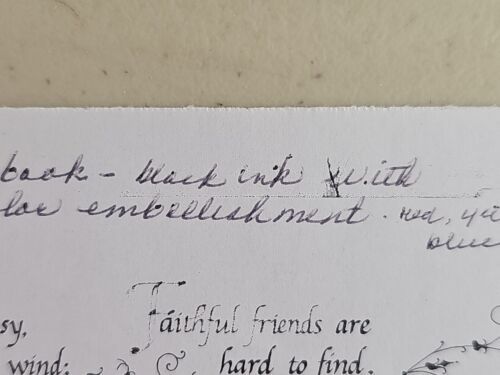 book - black ink With
lor embellishment. red, ye
blue
sy, Faithful friends are
wind; hard to find.